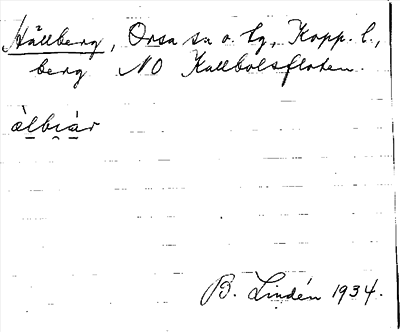 Hällberg, Orsa sn o. tg, Kopp. l.,
berg NO Kallbolsfloten.
àlbɩàr
B. Lindén 1934.